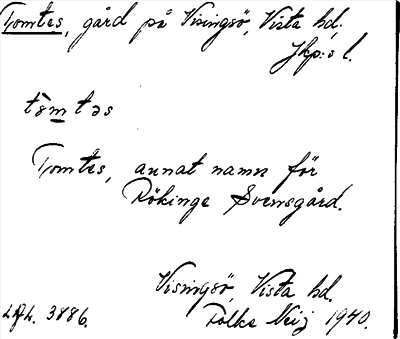 Tomtes, gård på Visingsö, Vista hd.
Jkp:s l.
tòmtəs
Tomtes, annat namn för
Rökinge Svensgård.
Visingsö, Vista hd.
3886.
Folke Neij 1940.